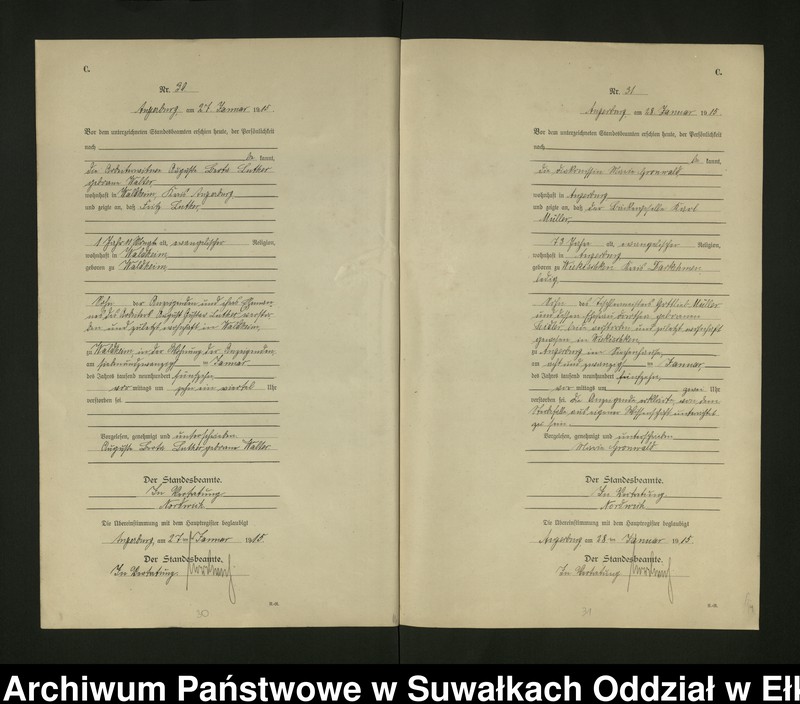 C.
Nr. 30
Angerburg am 27. Januar 1915.
Vor dem unterzeichneten Standesbeamten erschien heute, der Persönlichkeit
nach
be kannt,
die Auguste Berta Lutter
geborene Walter
wohnhaft in Waldheim, Kreis Angerburg
und zeigte an, daß Fritz Lutter,
1 Jahr 11 alt, evangelischer Religion,
wohnhaft in Waldheim
geboren zu Waldheim,
Sohn der Anzeigenden und ihres
August Gustav Lutter,
und zuletzt wohnhaft in Waldheim,
zu Waldheim, in der Wohnung der Anzeigenden
am siebenundzwanzigsten Januar
des Jahres tausend neunhundert fünfzehn
vor mittags um Uhr
verstorben sei.
Vorgelesen, genehmigt und unterschrieben
Auguste Berta Lutter geborene Walter
Der Standesbeamte.
In Vertretung
Die Übereinstimmung mit dem Hauptregister beglaubigt
Angerburg, am 27ten Januar 1915.
Der Standesbeamte.
In Vertretung
30
C.
Nr. 31
Angerburg am 28. Januar 1915.
Vor dem unterzeichneten Standesbeamten erschien heute, der Persönlichkeit
nach
be kannt,
die Diakonissin Marie Gronwald
wohnhaft in Angerburg
und zeigte an, daß der Karl
Müller,
72 Jahre alt, evangelischer Religion,
wohnhaft in Angerburg
geboren zu Kreis Darkehmen
ledig
Sohn des Tischlermeisters Gottlieb Müller
und dessen Ehefrau Dorothea geborenen
beide verstorben und zuletzt wohnhaft
gewesen in
zu Angerburg im Siechenhause,
am achtundzwanzigsten Januar
des Jahres tausend neunhundert fünfzehn,
vor mittags um Uhr
verstorben sei. Die Anzeigende erklärte, von dem
Sterbefalle aus eigener Wissenschaft unterrichtet
zu sein.
Vorgelesen, genehmigt und unterschrieben
Marie Gronwald
Der Standesbeamte.
In Vertretung
Die Übereinstimmung mit dem Hauptregister beglaubigt
Angerburg am 28ten Januar 1915.
Der Standesbeamte.
In Vertretung
31
Archiwum Państwowe w Suwałkach Oddział w Ełk